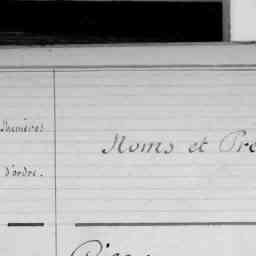 Numéros
d'ordre.
Noms et Pré